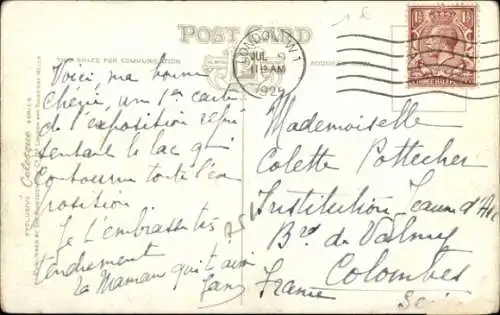 POST CARD
THIS SPACE FOR COMMUNICATION
ADDRESS
LONDON N.W.1
JUL
11 15 AM
1929
1½ 1½
Voici ma bonne
chérie, un 1er carte
de l'exposition repré
sentant le lac qui
contourne toute l'ex
position.
Je t'embrasse très
tendrement
ta Maman qui t'aime
Mademoiselle
Colette Pottecher
Institution Jeanne d'Arc
Bd de Valmy
Colombes
France
Celesque
SERIES